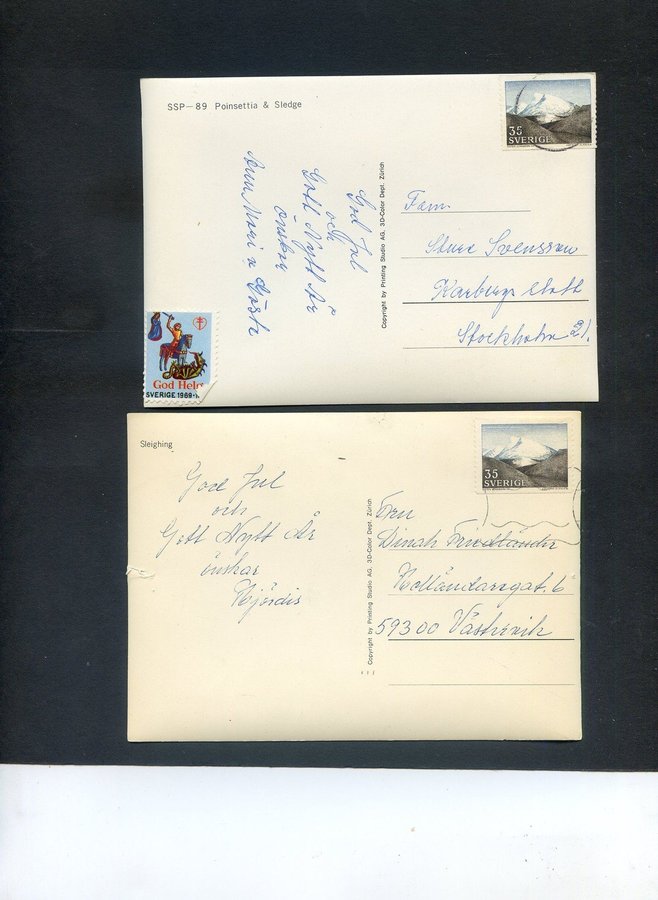 SSP–89 Poinsettia & Sledge
35
SVERIGE
God Jul
och
Gott Nytt År
önskar
Ann Mari o Gösta
God Helg
SVERIGE 1969-
Copyright by Printing Studio AG, 3D-Color Dept. Zürich
Fam.
Sture Svensson
Stockholm 21.
Sleighing
35
SVERIGE
God Jul
och
Gott Nytt År
önskar
Hjördis
Copyright by Printing Studio AG, 3D-Color Dept. Zürich
Fru
Dinah Friedländer
Holländaregat. 6
59300 Västervik